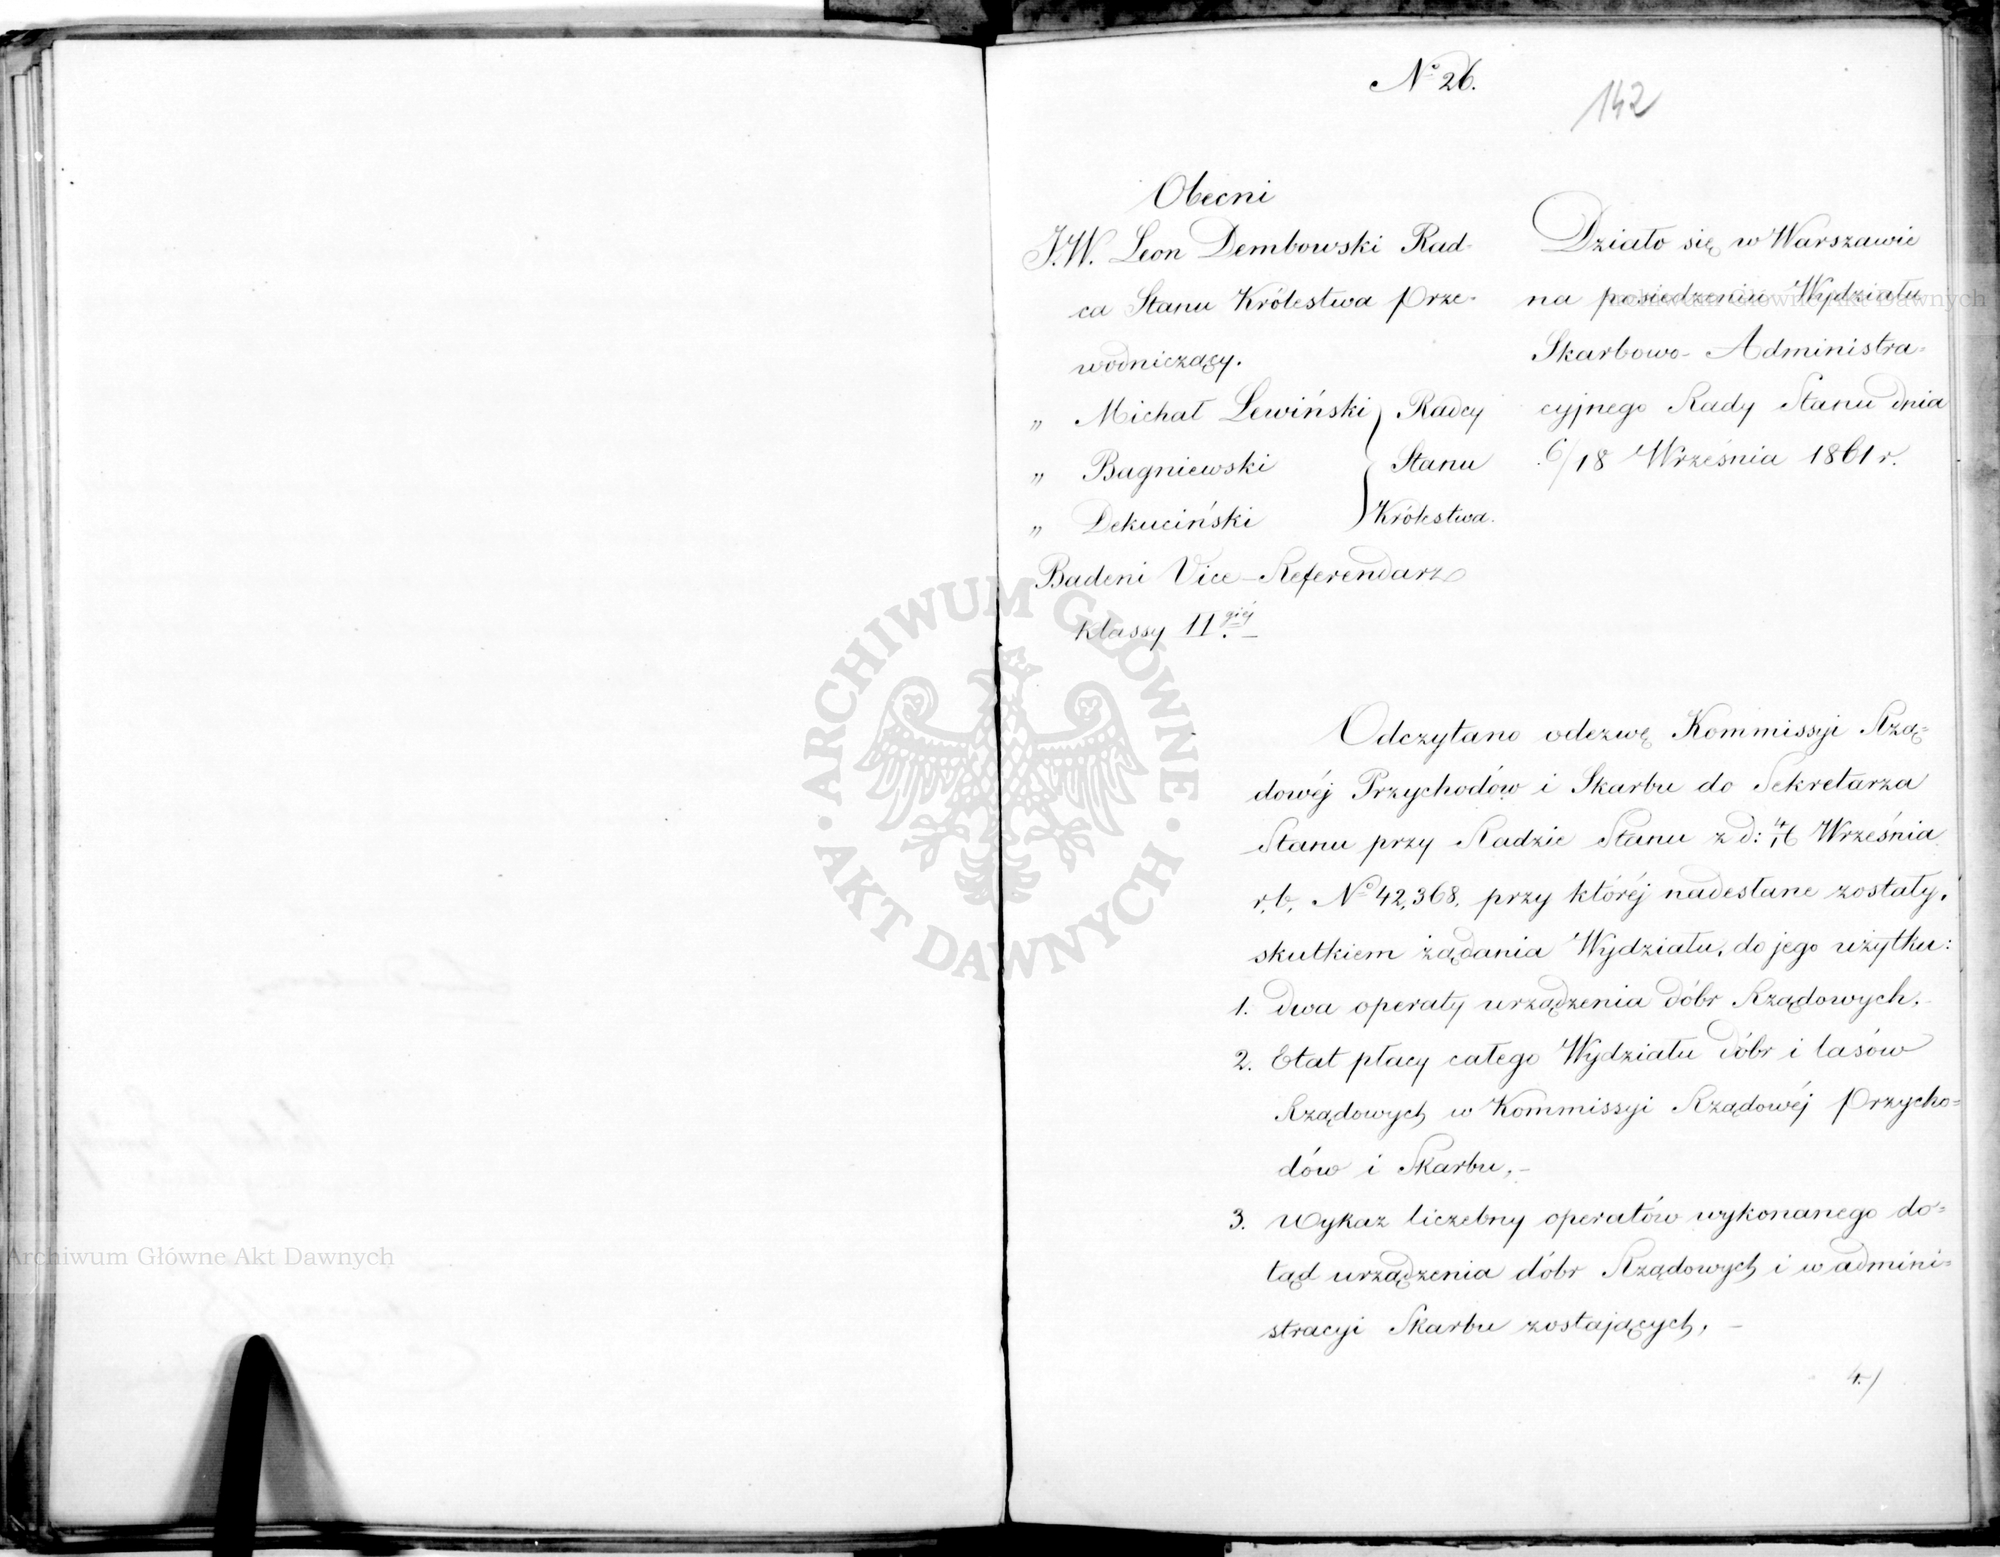 № 26.
142
Obecni
J.W. Leon Dembowski Rad-
ca Stanu Królestwa Prze-
wodniczący.
„ Michał Lewiński } Radcy
„ Bagniewski } Stanu
„ Dekuciński } Królestwa.
Badeni Vice-Referendarz
klassy II giéj
Działo się w Warszawie
na posiedzeniu Wydziału
Skarbowo-Administra-
cyjnego Rady Stanu dnia
6/18 Września 1861 r.
Odczytano odezwę Kommissyi Rzą-
dowéj Przychodów i Skarbu do Sekretarza
Stanu przy Radzie Stanu z d: 4/16 Września
r.b. № 42,368, przy któréj nadesłane zostały,
skutkiem żądania Wydziału, do jego użytku:
1. dwa operaty urządzenia dóbr Rządowych.
2. Etat płacy całego Wydziału dóbr i lasów
Rządowych w Kommissyi Rządowéj Przycho-
dów i Skarbu.-
3. Wykaz liczebny operatów wykonanego do-
tąd urządzenia dóbr Rządowych i w admini-
stracyi Skarbu zostających. -
4./
ARCHIWUM GŁÓWNE AKT DAWNYCH
Archiwum Główne Akt Dawnych
Archiwum Główne Akt Dawnych